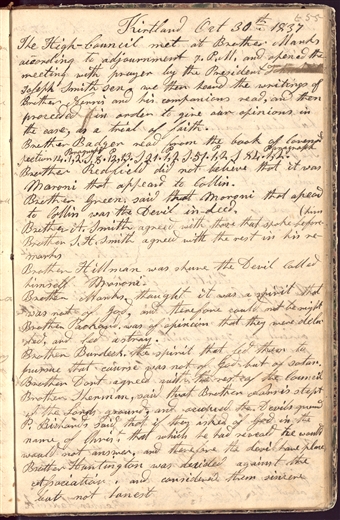 Kirtland Oct 30th 1837
The High-Council met at Brother Marks
according to adjournment 7. P.M, and opened the
meeting with prayer by the President
Joseph Smith sen, we then heard the writings of
Brother and his companions read, and then
proceeded in order to give our opinions in
the case, as a treat of faith.
Brother Badger read from the book of Covena
Paragraph 2 Paragraph
section 14.
Brother Redfield did not believe that it was
Maroni that appeard to Collin.
Brother Green, said that Moroni that apeard
to Collin was the Devil in-deed. (him
Brother A. Smith agreed with those that spoke before
Brother S. H. Smith agreed with the rest in his re-
marks
Brother Hillman was shure the Devil called
himself Moroni.
Brother Marks, thought it was a spirit that
was not of God, and therefore could not be right
Brother Packard was of opinion that they were delu
ded, and led astray.
Brother Burdick the spirit that led them to
pursue that course was not of God but of satan.
Brother Dort agreed with the rest of the Council
Brother Sherman, said that Brother stept
of the Lords ground, and the Devils ground
P. said, that if they asked of God in the
name of Christ, that which he had reveald he would
would not answer, and therefore the devil have place
Brother Huntington was decided against the
Association, and considered them sincere
but not honest